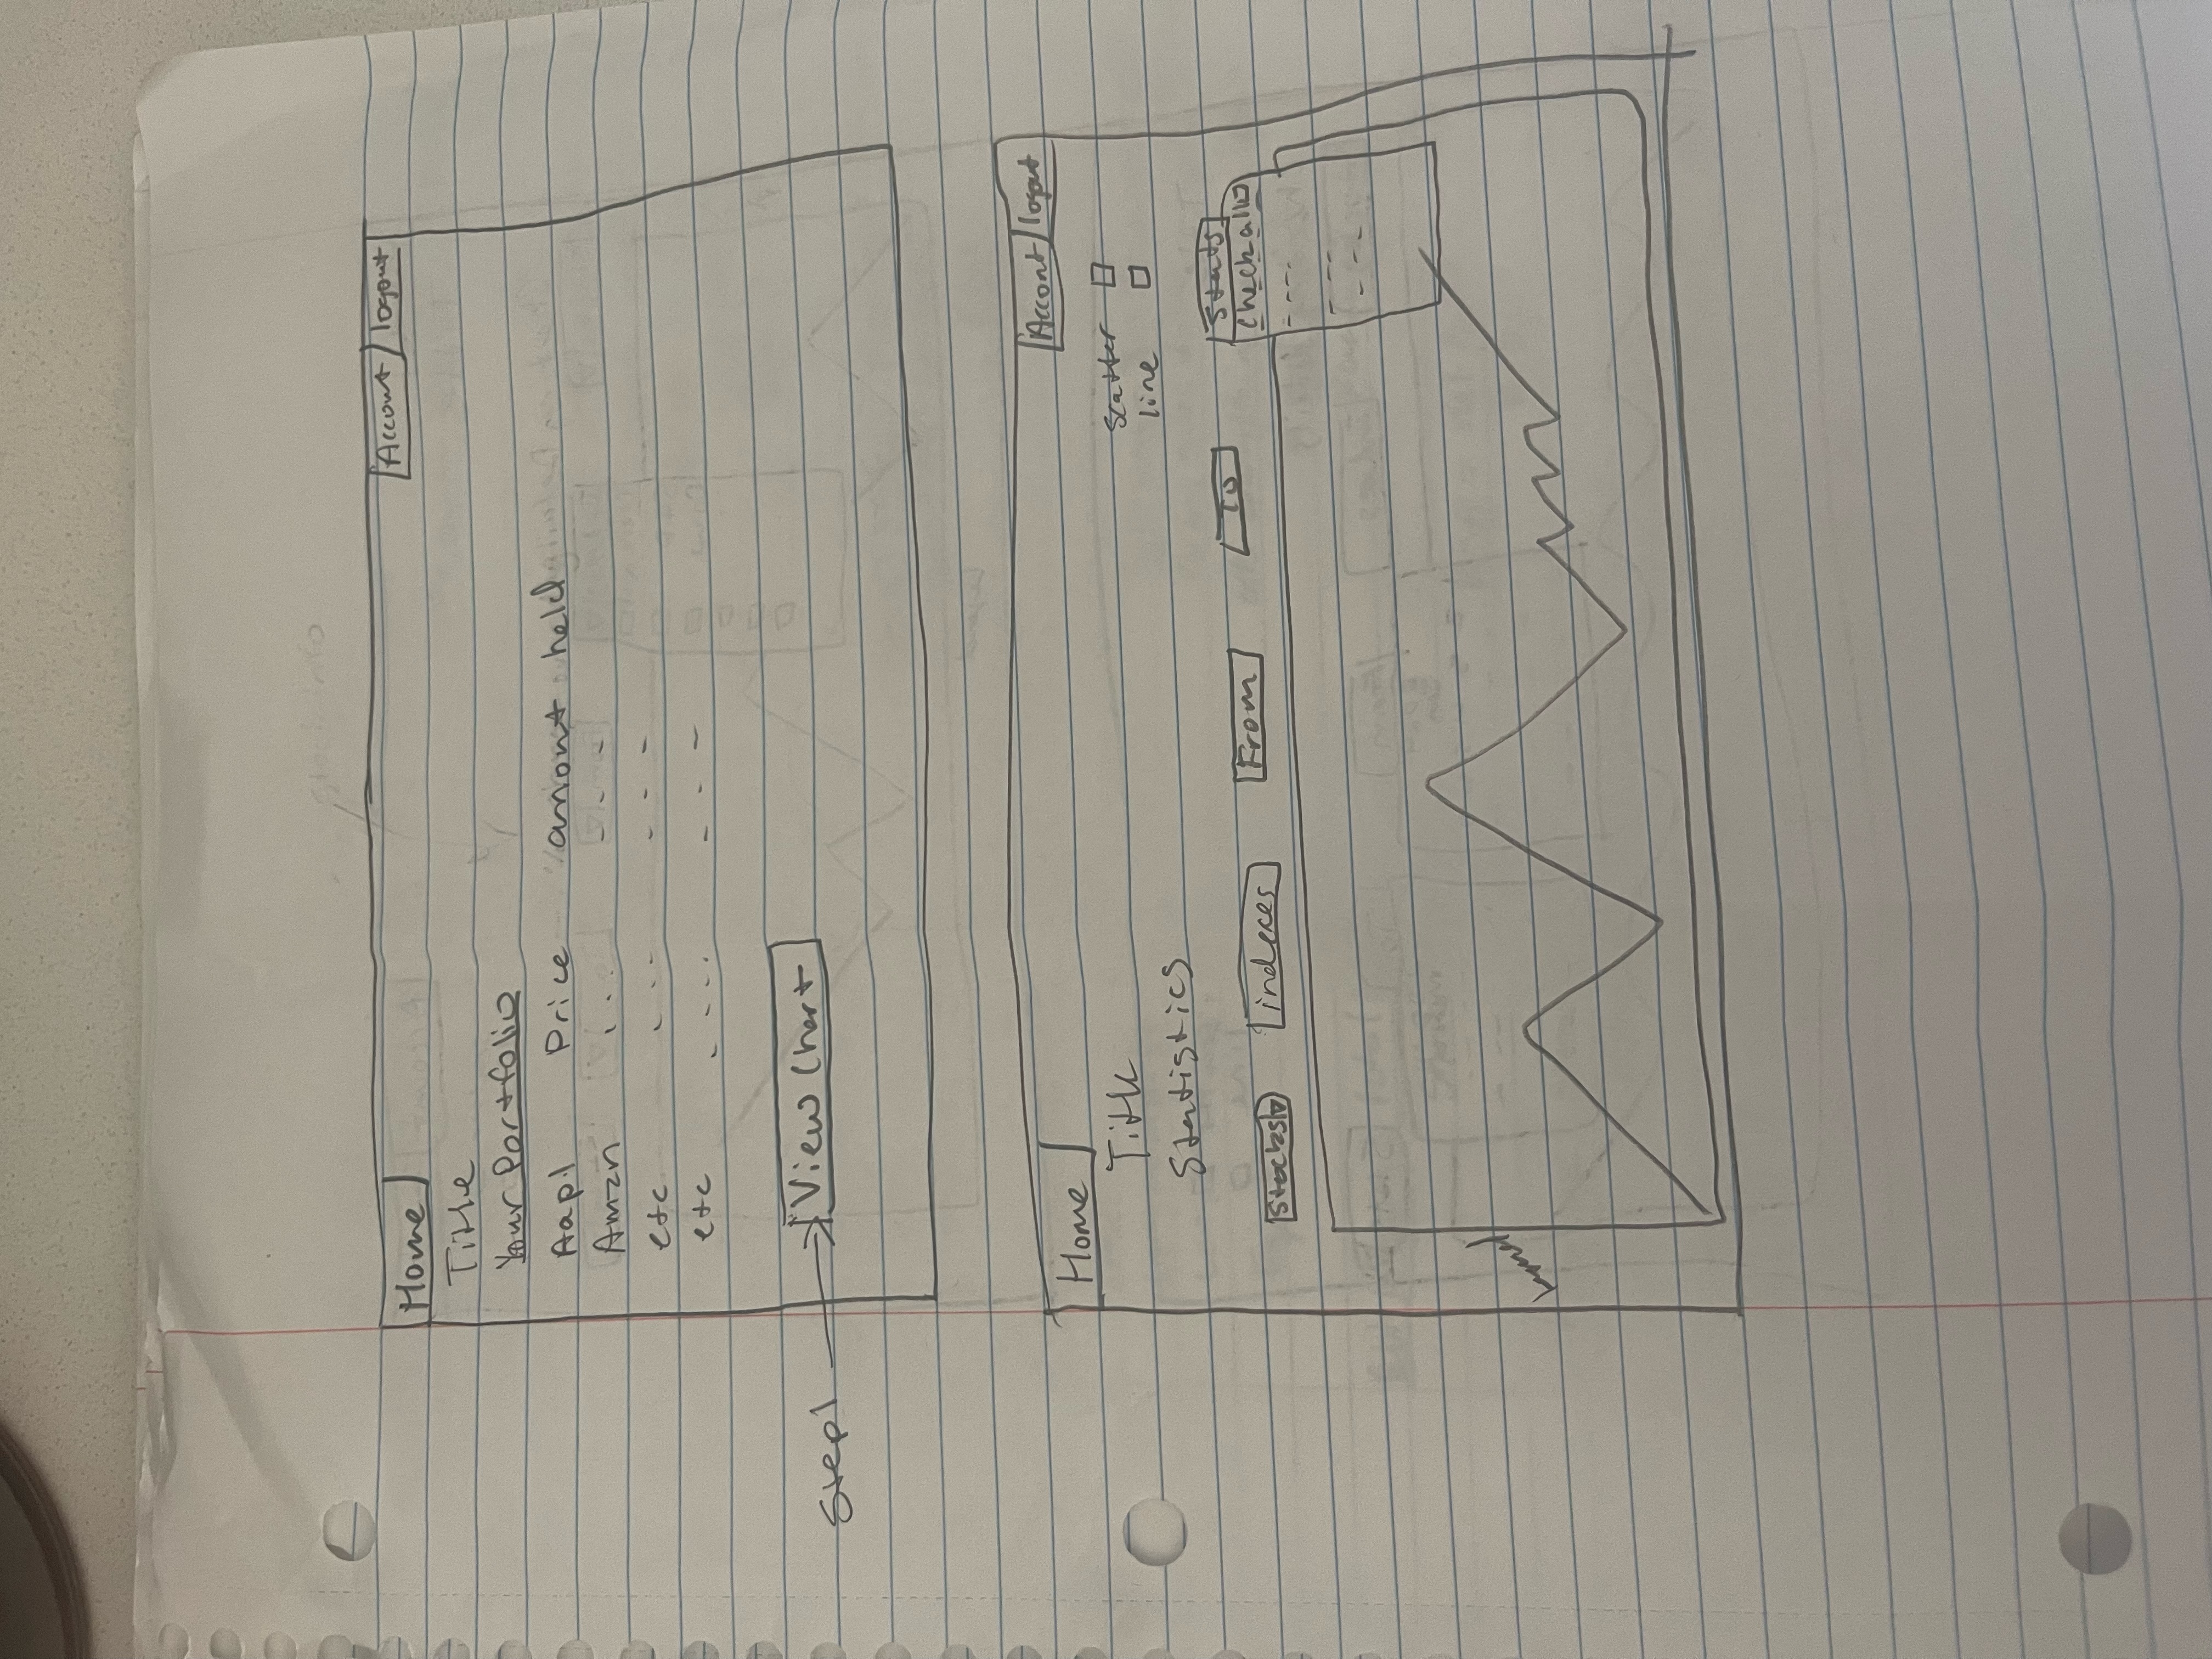 Home Account logout
Title
Your Portfolio
Aapl Price amount held
Amzn ... - - -
etc . ... - - -
etc . - ... - - -
Step1 View Chart
Home Account logout
Title scatter
line
Statistics
Stocks indexes From To Stats
Check all
- - - -
- - -
- - -